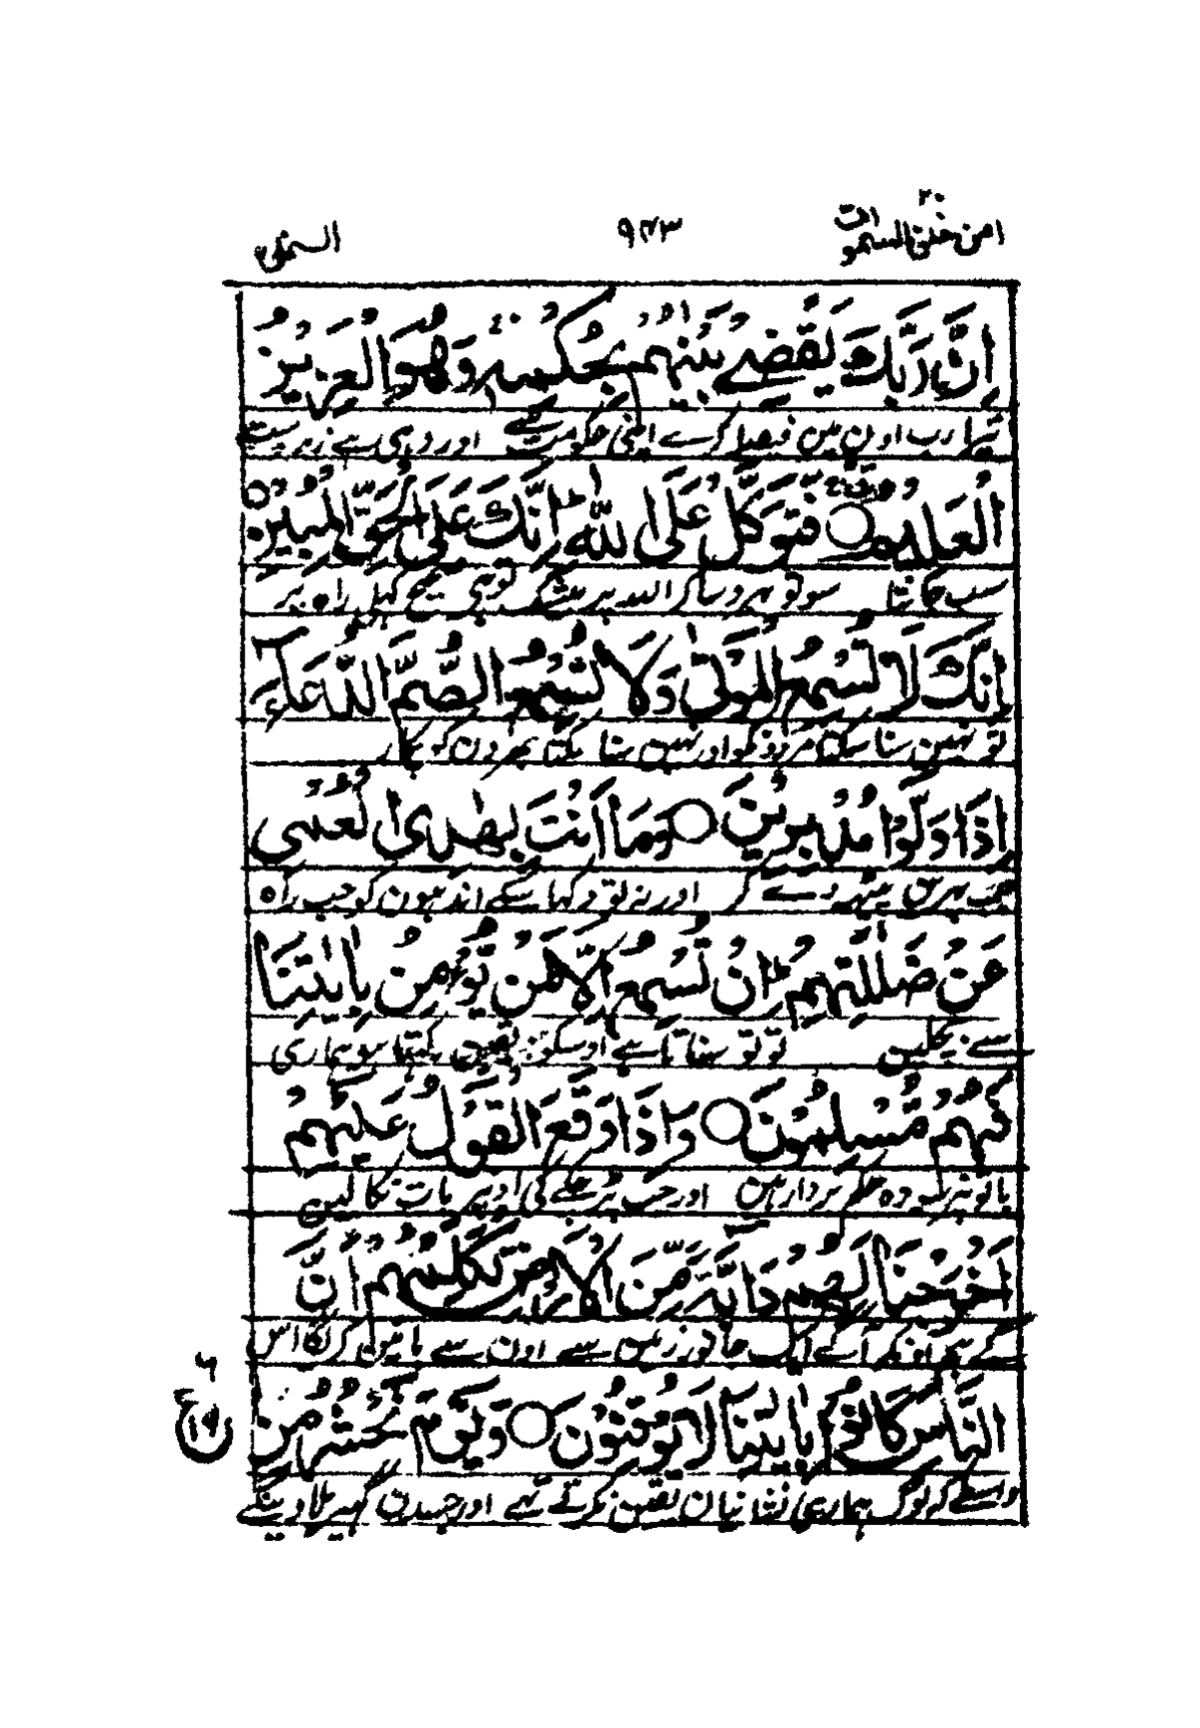 امن خلق السموات ۲۰
۹۴۳
النمل
اِنَّ رَبَّكَ يَقْضِىْ بَيْنَهُمْ بِحُكْمِهٖ وَهُوَ الْعَزِيْزُ
تیرا رب اون مین فیصلا کرے اپنی حکومت سے اور وہی ہے زبردست
الْعَلِيْمُ ○ فَتَوَكَّلْ عَلَى اللّٰهِ ؕ اِنَّكَ عَلَى الْحَقِّ الْمُبِيْنِ ○
سب جانتا سو تو بہروسا کر اللہ پر بیشک توہی صحیح کہلی راہ پر
اِنَّكَ لَا تُسْمِعُ الْمَوْتٰى وَلَا تُسْمِعُ الصُّمَّ الدُّعَآءَ
تو نہین سنا سکتا مردونکو اور نہین سنا سکتا بہرون کو پکار
اِذَا وَلَّوْا مُدْبِرِيْنَ ○ وَمَآ اَنْتَ بِهٰدِى الْعُمْىِ
جب پہرین پیٹہہ دے کر اور نہ تو دکہا سکے اندہون کو جب راہ
عَنْ ضَلٰلَتِهِمْ ؕ اِنْ تُسْمِعُ اِلَّا مَنْ يُّؤْمِنُ بِاٰيٰتِنَا
سے بچلین تو تو سناتا ہے اوسکو جو یقین رکہتا ہو ہماری
فَهُمْ مُّسْلِمُوْنَ ○ وَاِذَا وَقَعَ الْقَوْلُ عَلَيْهِمْ
باتونپر سو وہ حکم بردار ہین اور جب پڑ چکے گی اونپر بات نکالینگے
اَخْرَجْنَا لَهُمْ دَآبَّةً مِّنَ الْاَرْضِ تُكَلِّمُهُمْ اَنَّ
ہم اونکے آگے ایک جانور زمین سے اون سے باتین کریگا اس
النَّاسَ كَانُوْا بِاٰيٰتِنَا لَا يُوْقِنُوْنَ ○ وَيَوْمَ نَحْشُرُ مِنْ
واسطے کہ لوگ ہماری نشانیان یقین نکرتے تہے اور جسدن گہیر بلاوینگے
۶
ع